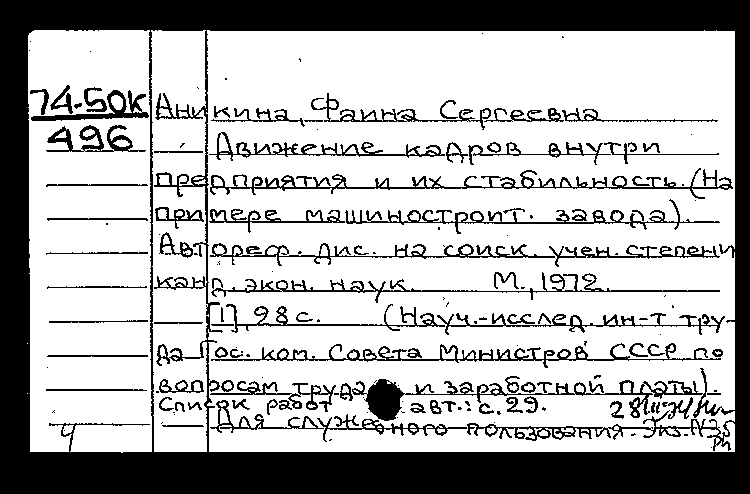 74-50К
496
Аникина, Фаина Сергеевна
Движение кадров внутри
предприятия и их стабильность. (На
примере машиностроит. завода).
Автореф. дис. на соиск. учен. степени
канд. экон. наук. М., 1972.
[1], 28 с. (Науч.-исслед. ин-т тру-
да Гос. ком. Совета Министров СССР по
вопросам труда и заработной платы).
Список работ авт.: с. 29. 28
Для служебного пользования. Экз. N35
4